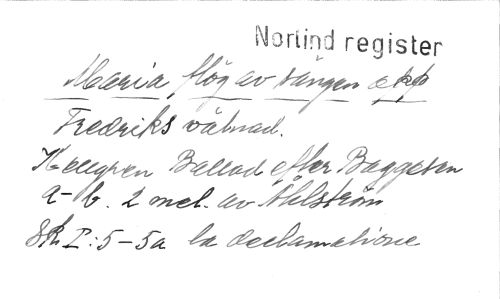 Norlind register
Maria flög av sängen opp
Fredriks vålnad.
Kellgren Ballad efter Baggesen
a-b. 2 mel. av Åhlström
Sk I:5-5a la declamatione